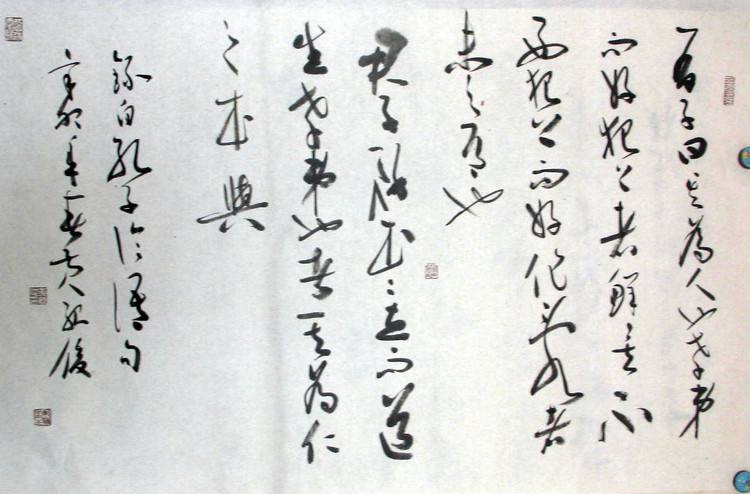 有子曰其為人也孝弟
而好犯上者鮮矣不
好犯上而好作亂者
未之有也
君子務本〻立而道
生孝弟也者其為仁
之本與
錄自孔子論語句
辛卯年春